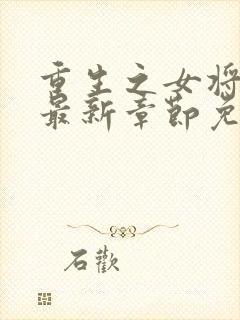 重生之女将
最新章节免
石歡